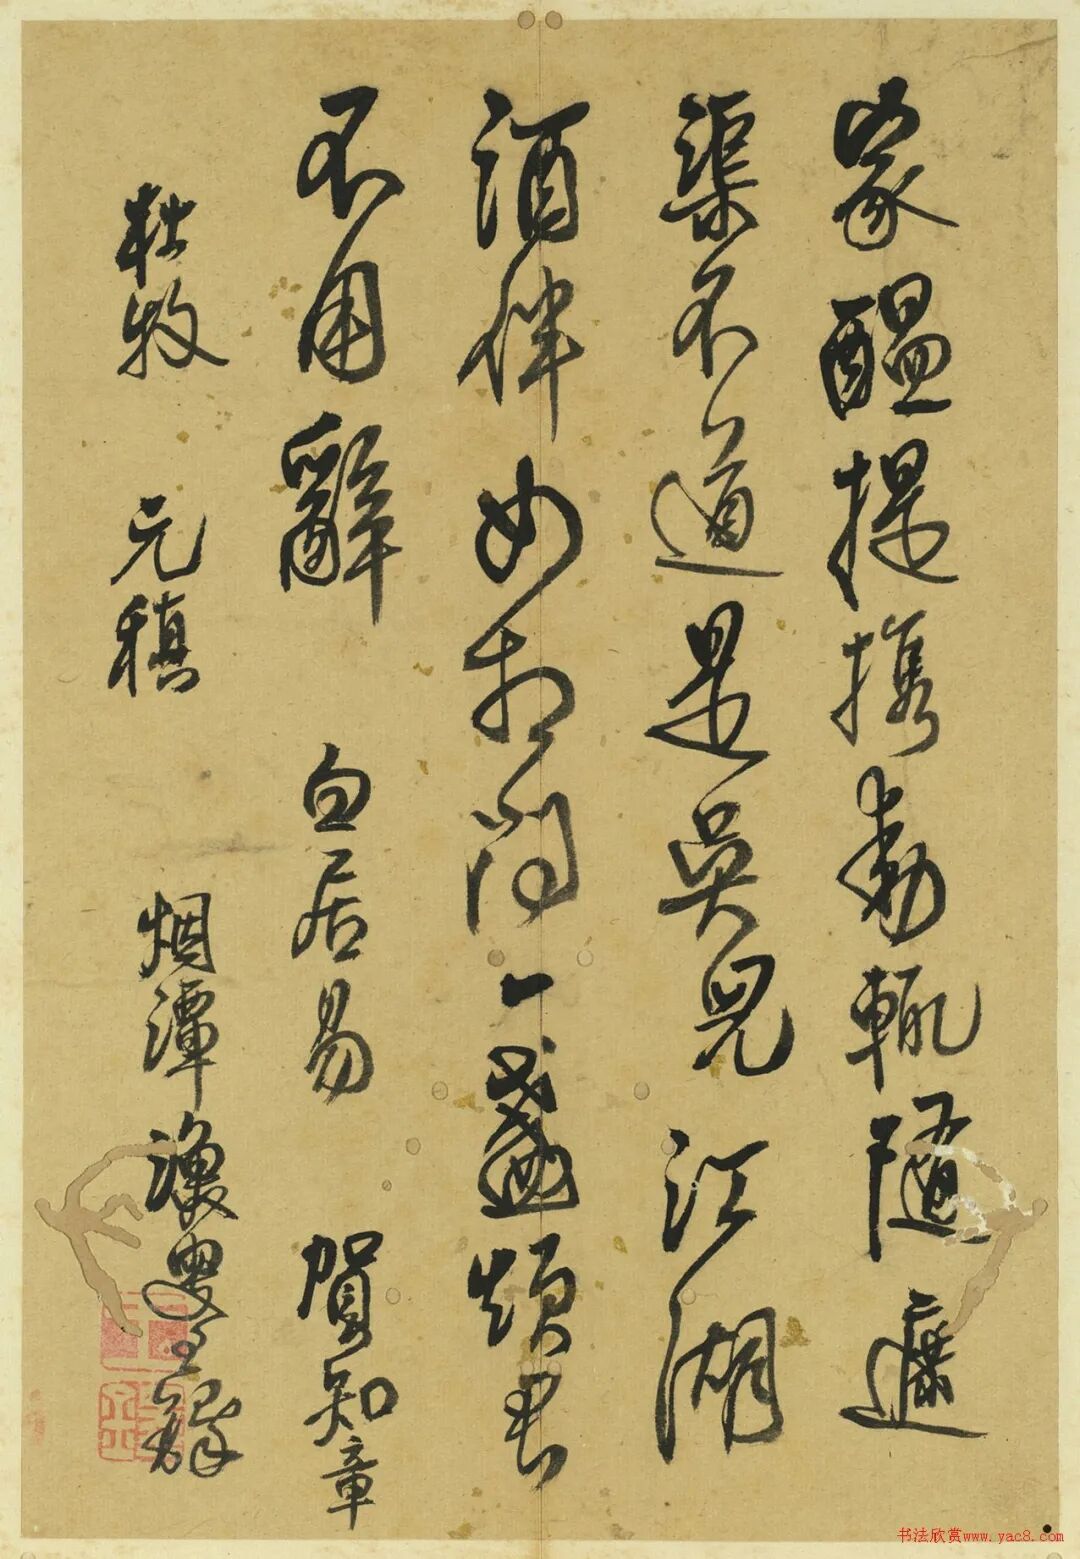 家醖提携動輒隨遮
渠不道是吳兒江湖
酒伴如相問一盞煩君
不用辭 白居易 賀知章
杜牧 元稹 烟潭漁叟王
书法欣赏www.yac8.com